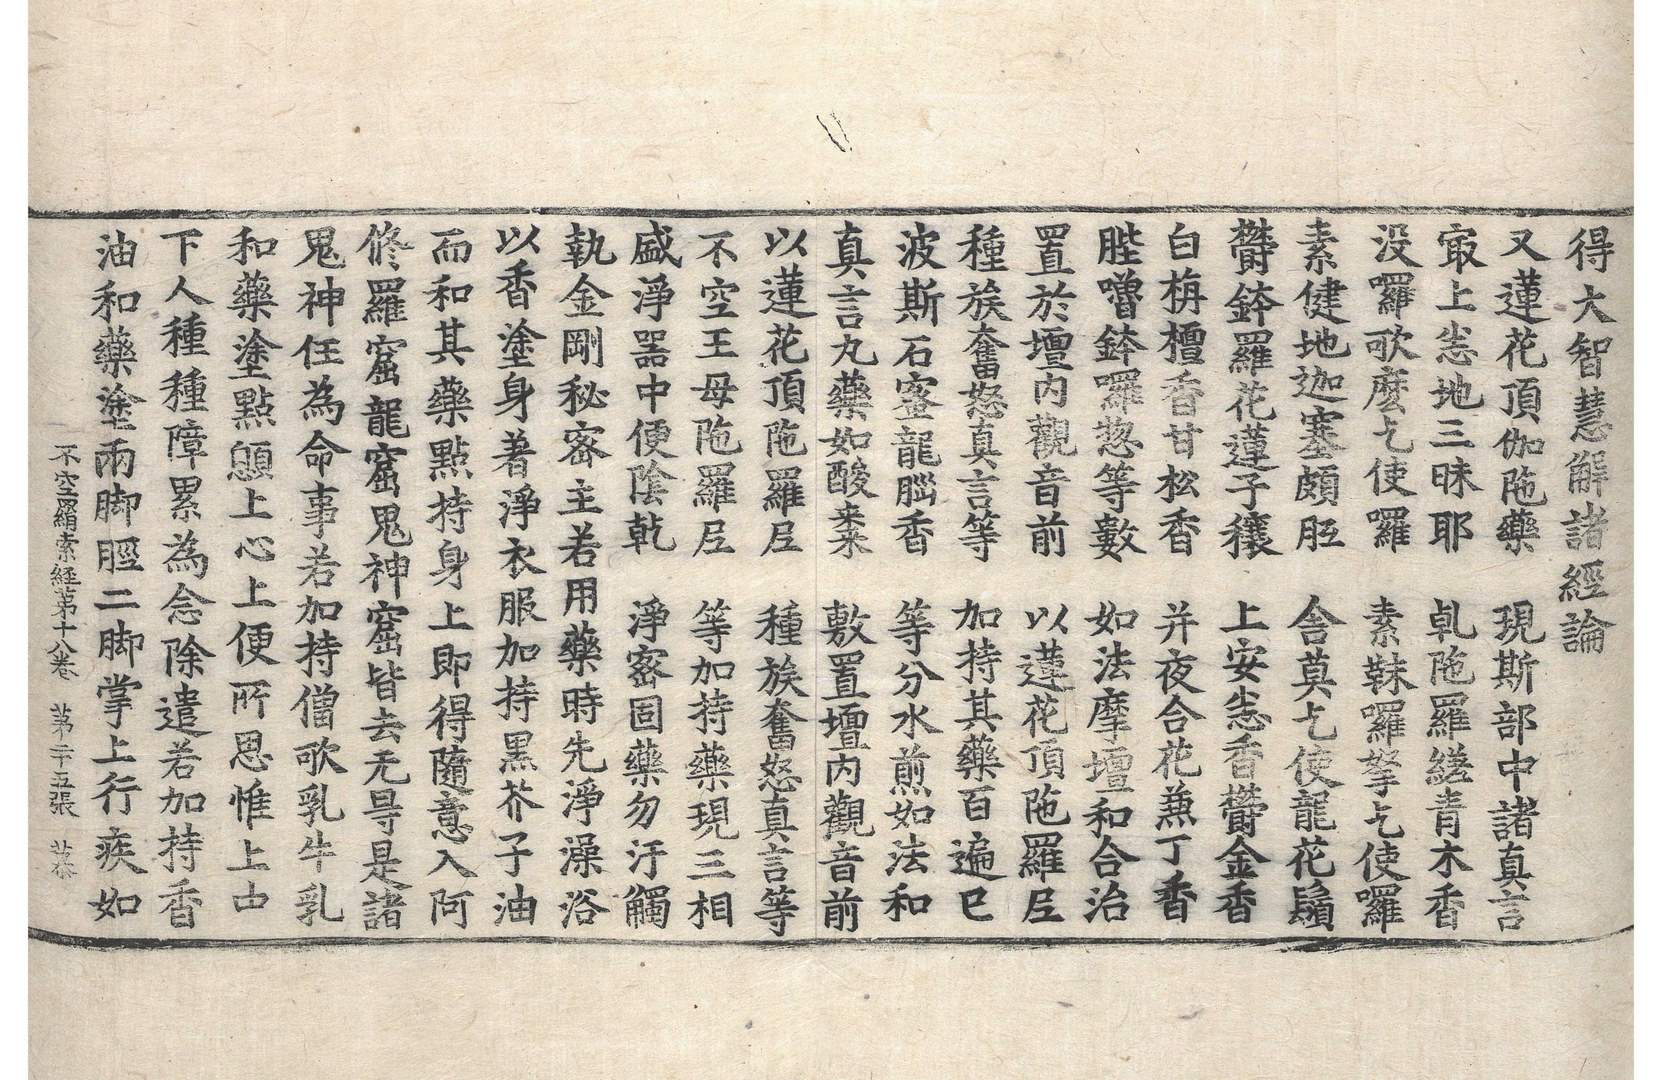 得大智慧解諸經論
又蓮花頂伽陁藥　現斯部中諸真言
冣上悉地三昧耶　乹陁羅縒青木香
没囉歌麽乞使囉　素靺囉拏乞使囉
素健地迦塞頗胝　舍莫乞使龍花鬚
欝鉢羅花蓮子穰　上安悉香欝金香
白栴檀香甘松香　并夜合花兼丁香
䏶嚕鉢囉惣等數　如法摩壇和合治
置於壇内觀音前　以蓮花頂陁羅尼
種族奮怒真言等　加持其藥百遍已
波斯石蜜龍腦香　等分水煎如法和
真言丸藥如酸來　敷置壇内觀音前
以蓮花頂陁羅尼　種族奮怒真言等
不空王母陁羅尼　等加持藥現三相
盛淨器中便陰乾　淨密固藥勿汙觸
執金剛秘密主若用藥時先淨澡浴
以香塗身著淨衣服加持黑芥子油
而和其藥點持身上即得隨意入阿
修羅窟龍窟鬼神窟皆去无㝵是諸
鬼神任為命事若加持僧歌乳牛乳
和藥塗點顋上心上便所思惟上中
下人種種障累為念除遣若加持香
油和藥塗兩脚脛二脚掌上行疾如
不空羂索經第十八卷　第二十五張　恭